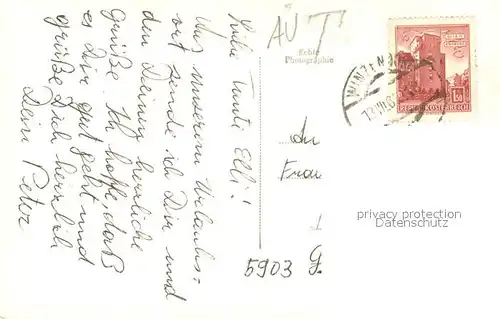 Liebe Tante Elli!
Aus unserem Urlaubs=
ort sende ich Dir und
den Deinen herrliche
Grüße. Ich hoffe, daß
es Dir gut geht und
grüße Dich herzlich
Dein Peter
AUT
Echte
Photographie
REPUBLIK ÖSTERREICH
1.50
An
Frau
5903 G
privacy protection
Datenschutz